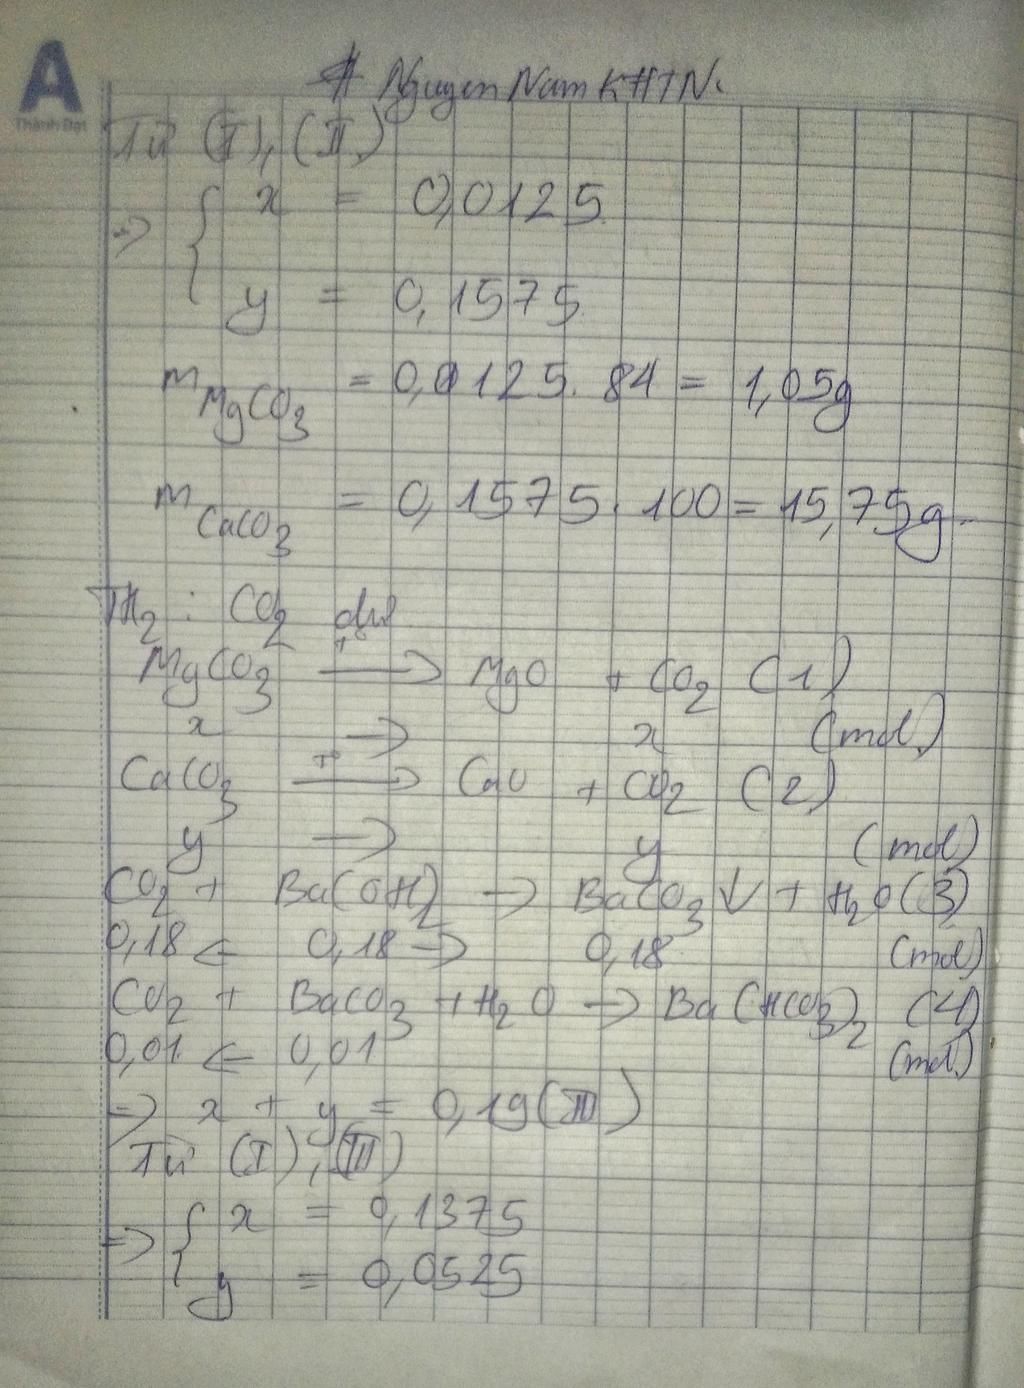 A
Thành Đạt
# Nguyen Nam KHTN.
Từ (I), (II)
=> { x = 0,0125
y = 0,1575
m MgCO3 = 0,0125. 84 = 1,05g
m CaCO3 = 0,1575. 100 = 15,75g.
TH2 : CO2 dư
MgCO3 —t°→ MgO + CO2 (1)
x → x (mol)
CaCO3 —t°→ CaO + CO2 (2)
y → y (mol)
CO2 + Ba(OH)2 → BaCO3 ↓ + H2O (3)
0,18 ← 0,18 → 0,18 (mol)
CO2 + BaCO3 + H2O → Ba(HCO3)2 (4)
0,01 ← 0,01 (mol)
=> x + y = 0,19 (III)
Từ (I), (III)
=> { x = 0,1375
y = 0,0525